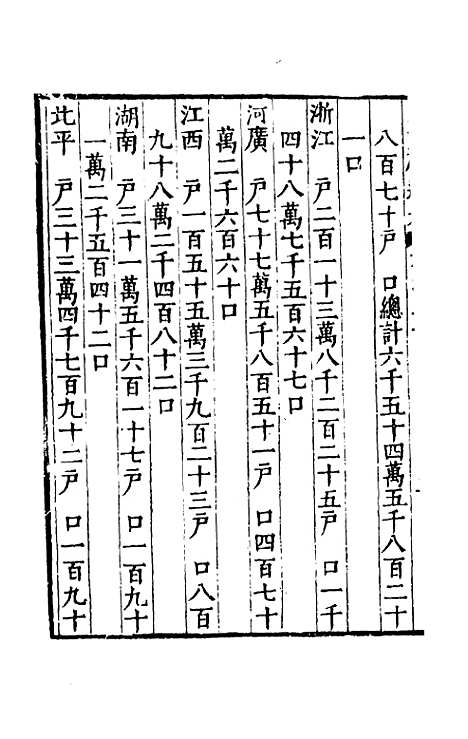 八百七十戸　口總計六千五十四萬五千八百二十
一口
浙江　戸二百一十三萬八千二百二十五戸　口一千
四十八萬七千五百六十七口
河廣　戸七十七萬五千八百五十一戸　口四百七十
萬二千六百六十口
江西　戸一百五十五萬三千九百二十三戸　口八百
九十八萬二千四百八十二口
湖南　戸三十一萬五千六百一十七戸　口一百九十
一萬二千五百四十二口
北平　戸三十三萬四千七百九十二戸　口一百九十